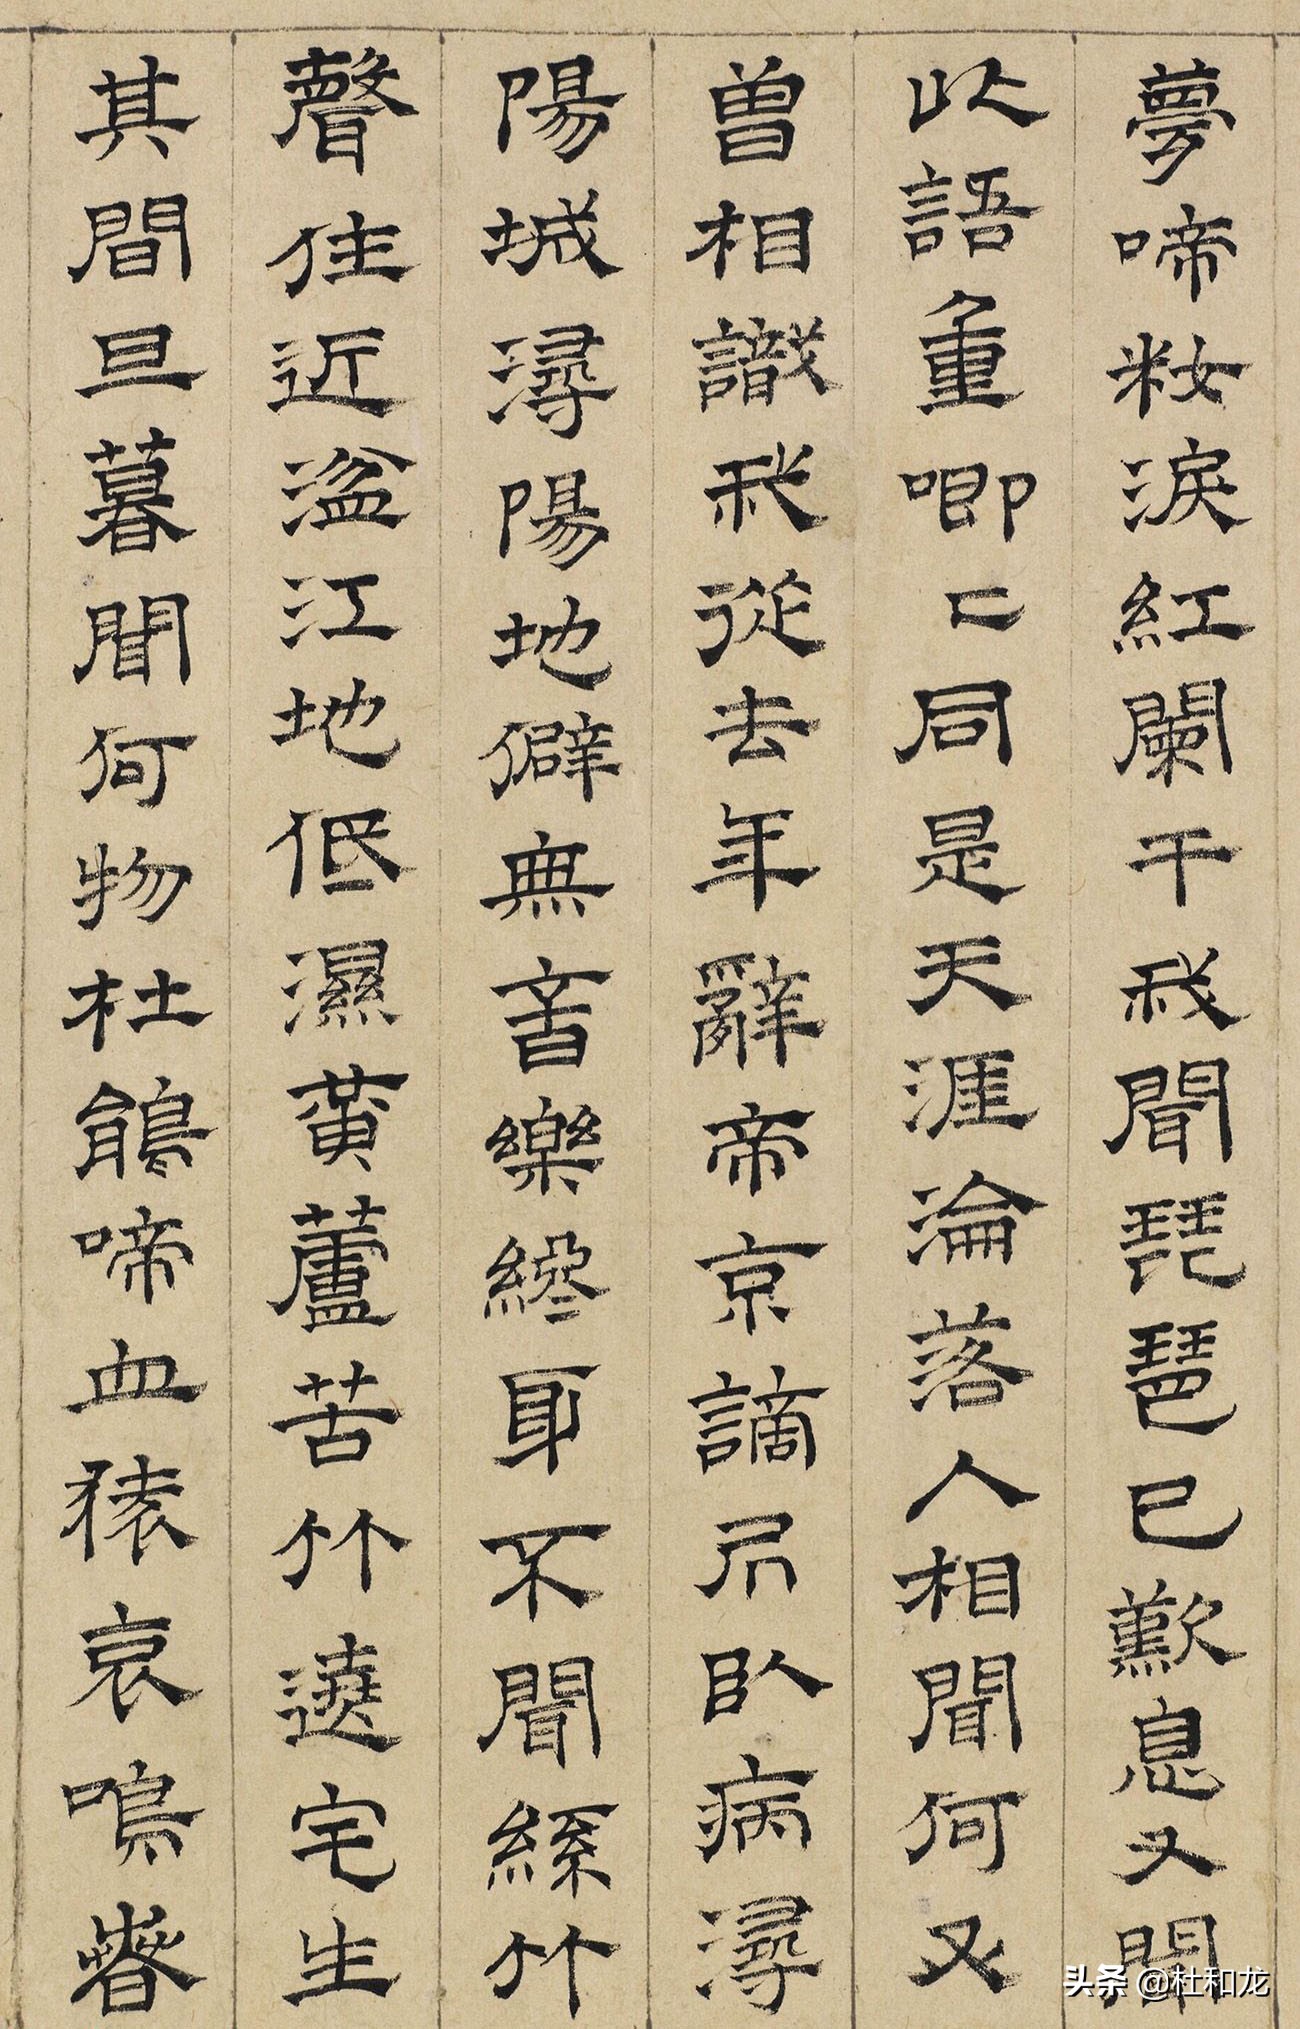 夢啼籹淚紅闌干我聞琵琶已歎息又聞
此語重唧〻同是天涯淪落人相聞何又
曾相識我從去年辭帝京謫凥臥病潯
陽城潯陽地僻無音樂終耳不聞絲竹
聲住近湓江地低濕黃蘆苦竹遶宅生
其間旦暮聞何物杜鵑啼血猿哀鳴春
头条 @杜和龙